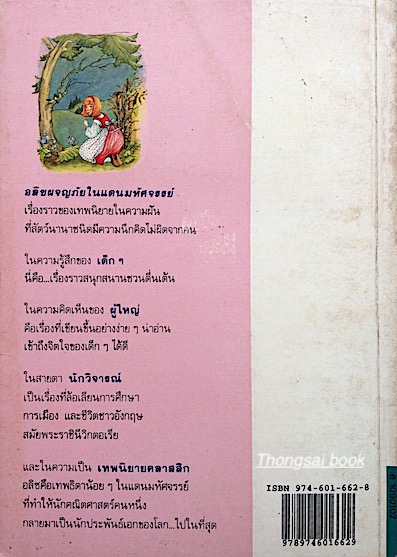 อลิซผจญภัยในแดนมหัศจรรย์
เรื่องราวของเทพนิยายในความฝัน
ที่สัตว์นานาชนิดมีความนึกคิดไม่ผิดจากคน
ในความรู้สึกของ เด็ก ๆ
นี่คือ...เรื่องราวสนุกสนานชวนตื่นเต้น
ในความคิดเห็นของ ผู้ใหญ่
คือเรื่องที่เขียนขึ้นอย่างง่าย ๆ น่าอ่าน
เข้าถึงจิตใจของเด็ก ๆ ได้ดี
ในสายตา นักวิจารณ์
เป็นเรื่องที่ล้อเลียนการศึกษา
การเมือง และชีวิตชาวอังกฤษ
สมัยพระราชินีวิกตอเรีย
และในความเป็น เทพนิยายคลาสสิก
อลิซคือเทพธิดาน้อย ๆ ในแดนมหัศจรรย์
ที่ทำให้นักคณิตศาสตร์คนหนึ่ง
กลายมาเป็นนักประพันธ์เอกของโลก...ไปในที่สุด
Thongsai book
ISBN 974-601-662-8
9789746016629